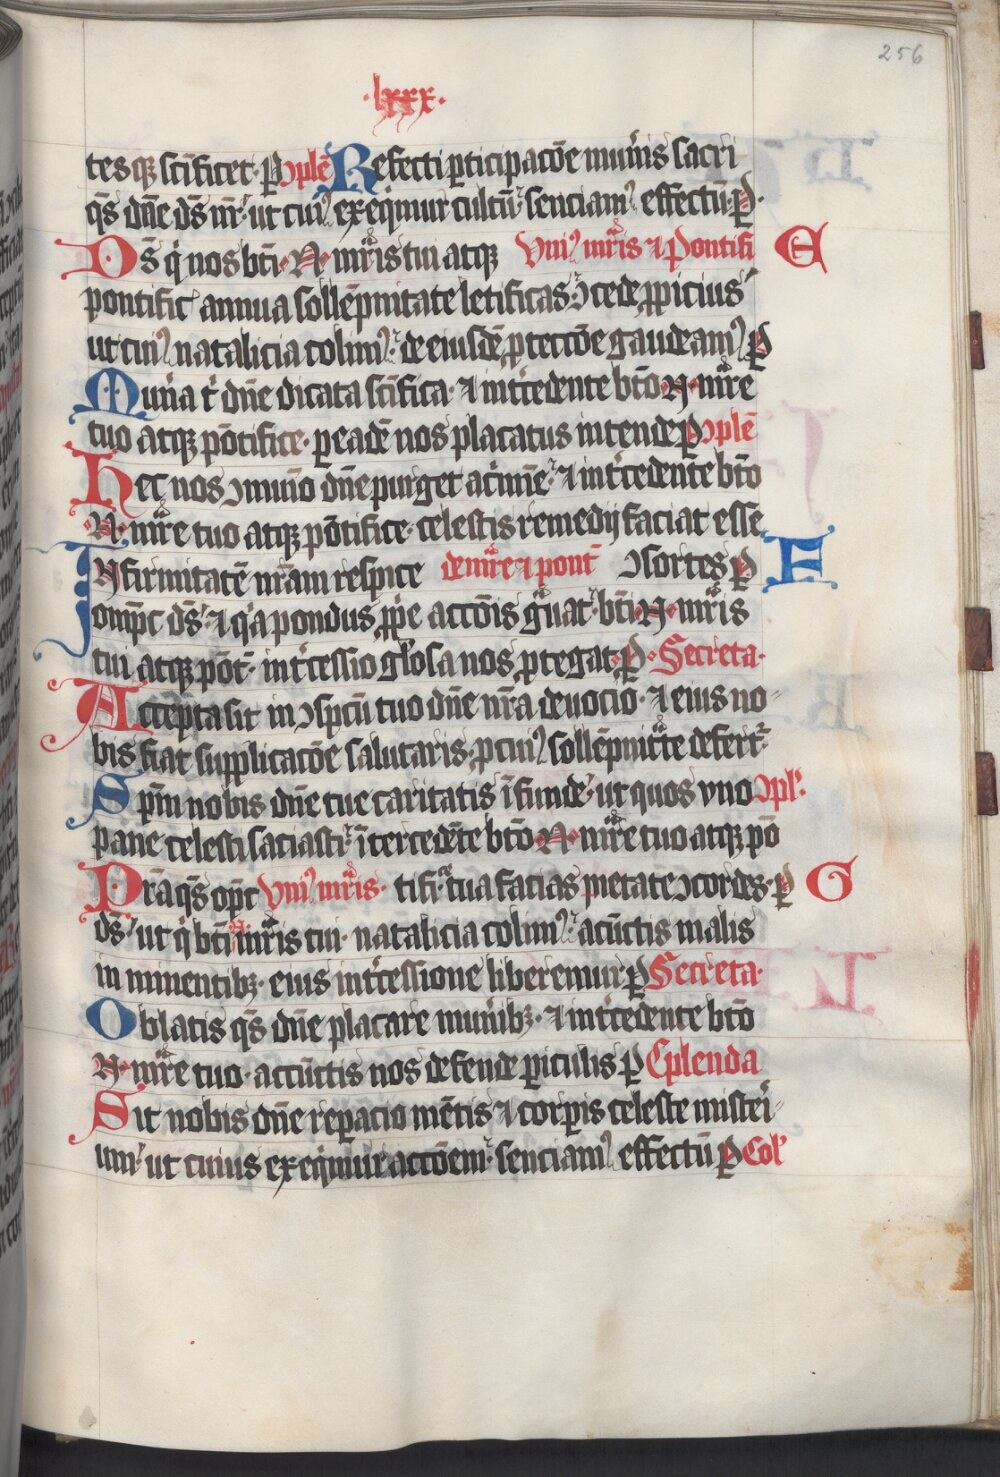 256
·lxxx·
tesqꝫ scīficet· ꝑ ꝯplē Refecti ꝑticipacōe muneris sacri
q̄s dn̄e ds̄ nr̄ ut cuiꝰ exeqimur cultū senciamꝰ effectū· ꝑ·
Ds̄ qi nos bt̄i· N· mr̄is tui atqꝫ Vniꝰ mr̄is ⁊ Pontifi E
pontific̄ annua sollēpnitate letificas ꝯcede ꝓpicius
ut cuiꝰ natalicia colimꝰ de eiusdē ꝓteccōe gaudeamꝰ ꝑ
Mun̄a t̄ dn̄e dicata scīfica· ⁊ int̄cedente bt̄o· N· mr̄e
tuo atqꝫ pōtifice· ꝑ eadē nos placatus intende ꝑ ꝯplē
Hec nos ꝯmunio dn̄e purget a crīmē ⁊ int̄cedente bt̄o
·N· mr̄e tuo atqꝫ pōtifice· celestis remedij faciat esse
Infirmitatē nr̄am respice de mr̄e ⁊ pont̄ ꝯsortes ꝑ F
omp̄c ds̄ ⁊ qia pondus ꝓpe accōis gᵃuat bt̄i· N· mr̄is
tui atqꝫ pōt· int̄cessio glōsa nos ꝓtegat· ꝑ· Secreta·
Accepta sit in ꝯspcū tuo dn̄e nr̄a deuocio· ⁊ eius no-
bis fiat supplicacōe salutaris ꝑ cuiꝰ sollēpnitᵃte defert̄
Spm̄ nobis dn̄e tue caritatis īfunde ut quos vno ꝯpl·
pane celesti saciasti īterced̄ete bt̄o· N· mr̄e tuo atqꝫ pō
Prā q̄s op̄c Vniꝰ mr̄is· tifi tua facias pietate ꝯcordes· ꝑ G
ds̄ ut qi bt̄i· N· mr̄is tui· natalicia colimꝰ a cūctis malis
in minentibꝫ· eius int̄cessione liberemur ꝑ Secreta·
Oblatis q̄s dn̄e placare munibꝫ· ⁊ int̄cedente bt̄o
·N· mr̄e tuo· a cūctis nos defende ꝑiculis ꝑ Cplenda
Sit nobis dn̄e reꝑacio mētis ⁊ corꝑis celeste misteri-
um ut cuius exeqimur accōem senciamꝰ effectū ꝑ Col'